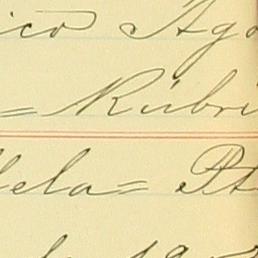 ico Ago
= Rúbri
lela= Pt